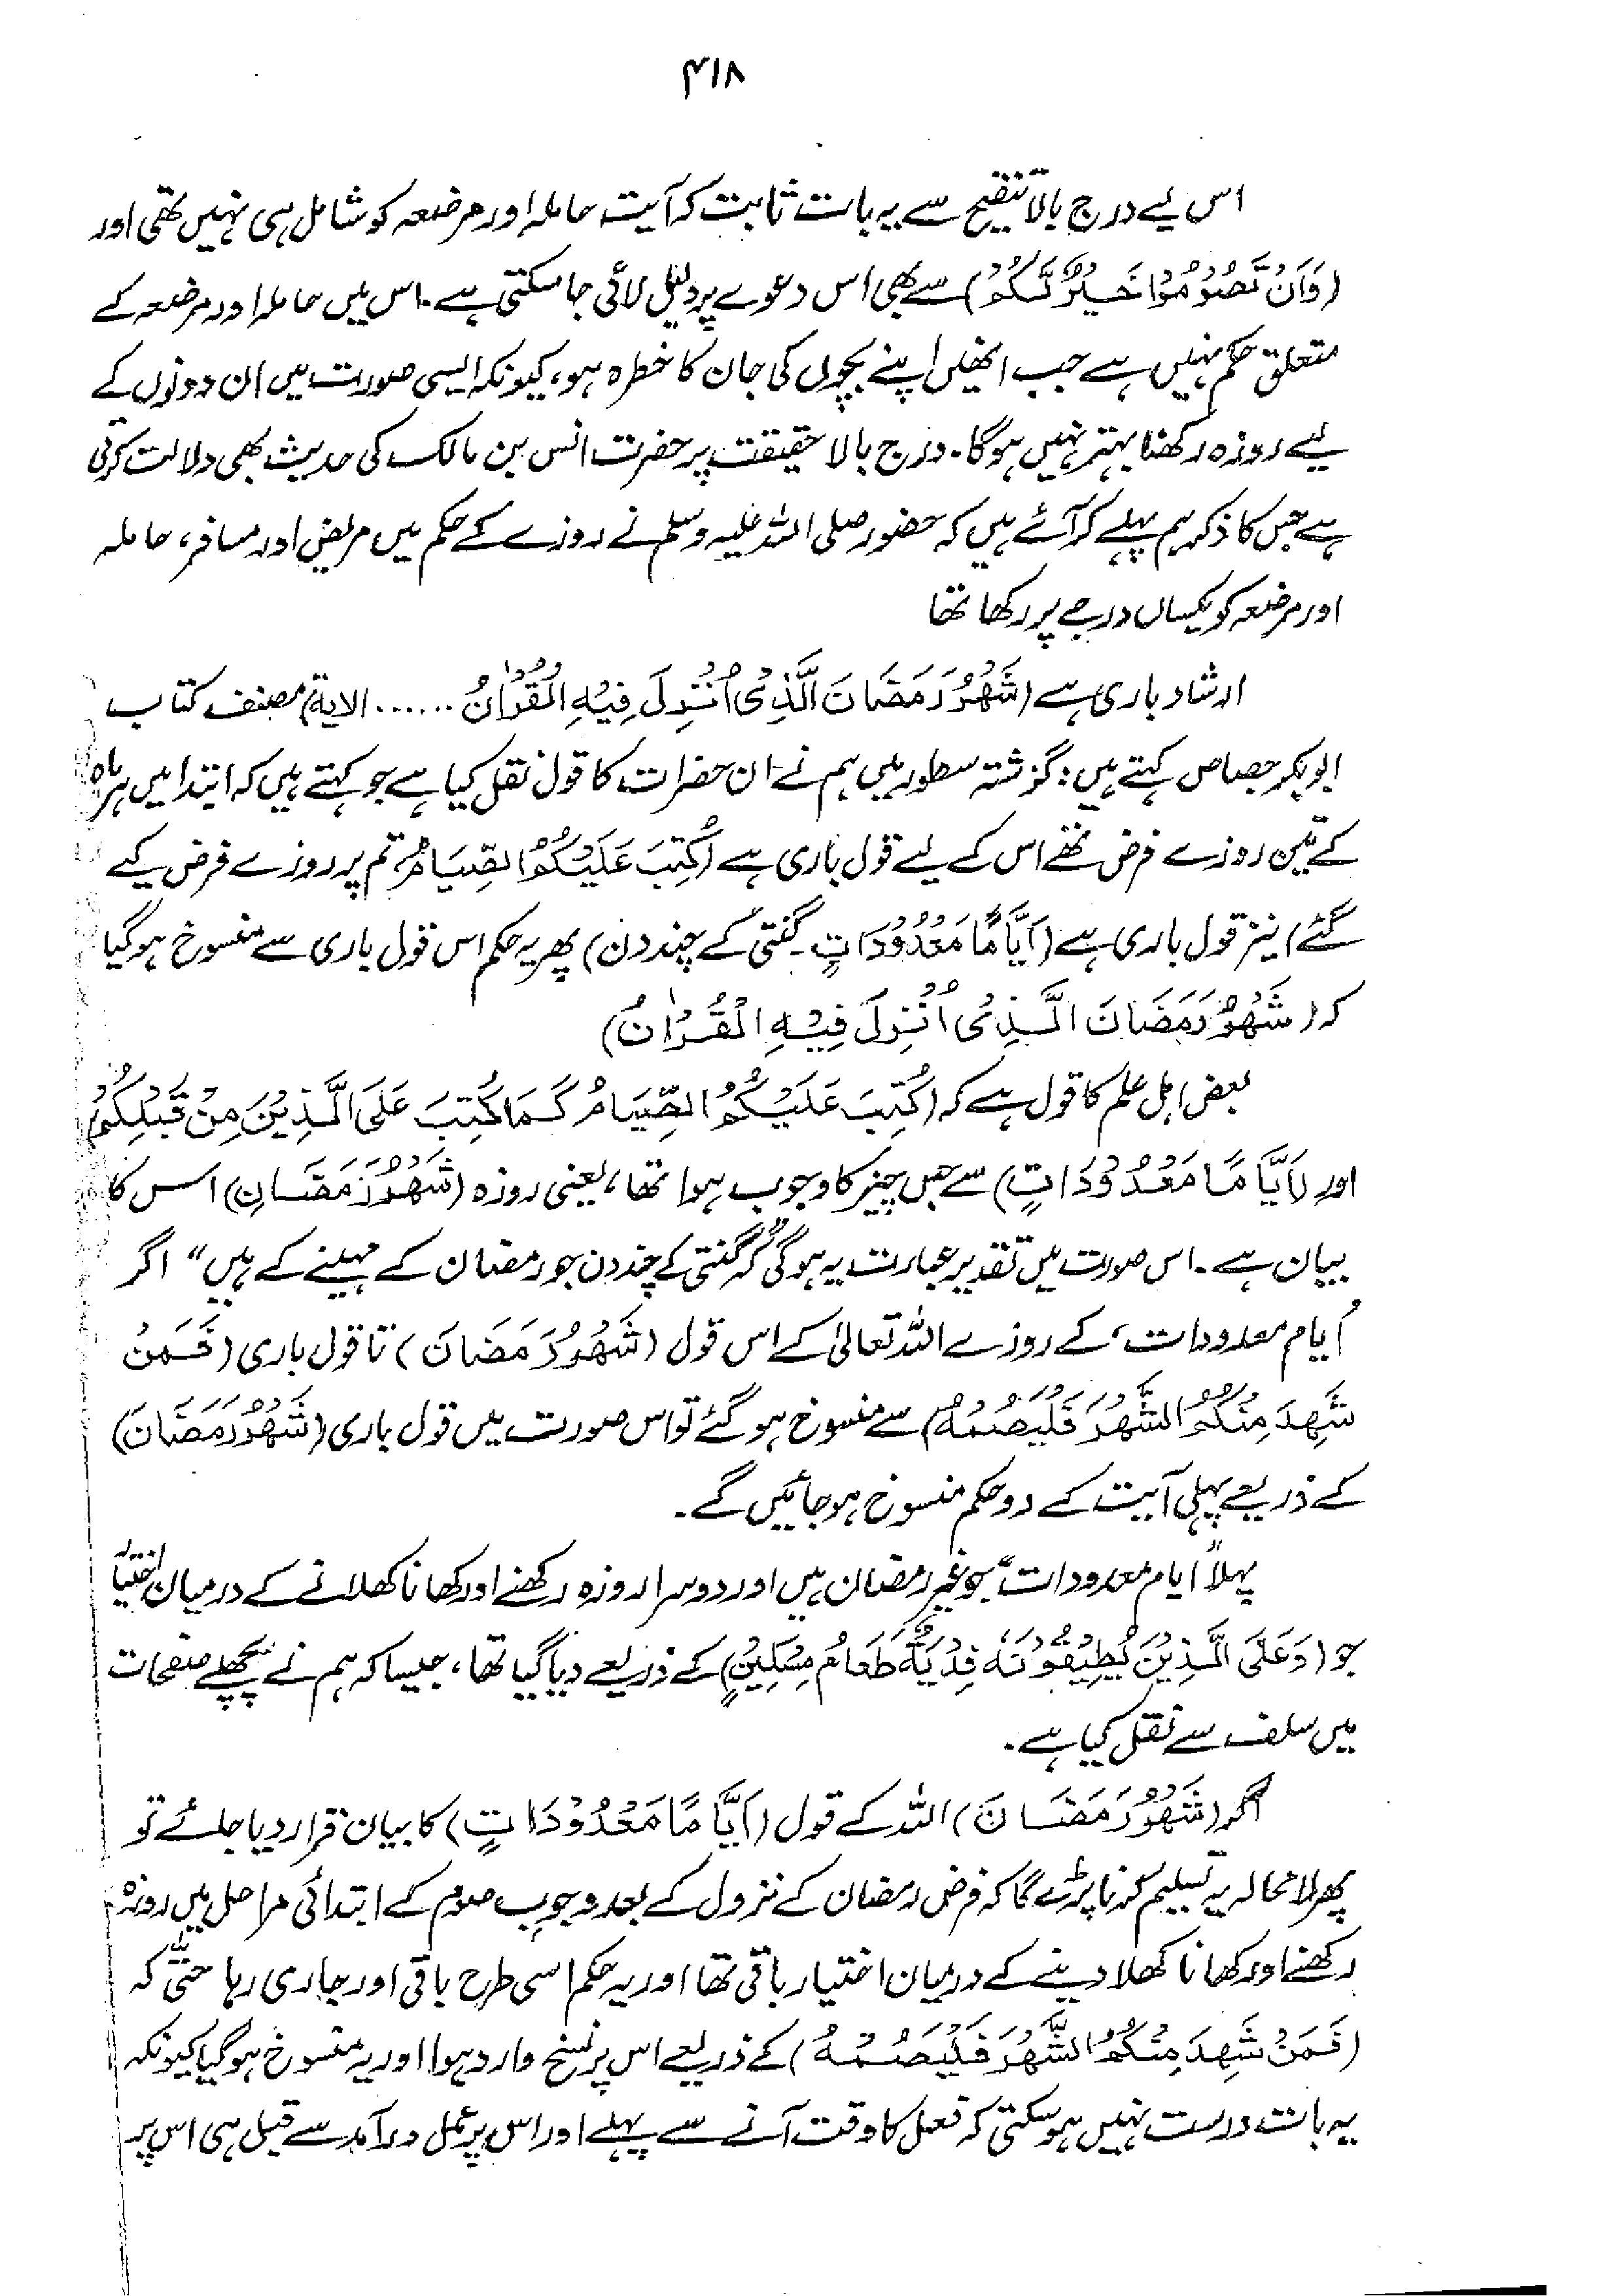 ۴۱۸
اس لیے درج بالا تنقیح سے یہ بات ثابت کہ آیت حاملہ اور مرضعہ کو شامل ہی نہیں تھی اور
(وَاَنْ تَصُوْمُوْا خَیْرٌ لَّکُمْ) سے بھی اس دعوے پر دلیل لائی جا سکتی ہے۔ اس میں حاملہ اور مرضعہ کے
متعلق حکم نہیں ہے جب انھیں اپنے بچوں کی جان کا خطرہ ہو، کیونکہ ایسی صورت میں ان دونوں کے
لیے روزہ رکھنا بہتر نہیں ہوگا۔ درج بالا حقیقت پر حضرت انس بن مالک کی حدیث بھی دلالت کرتی
ہے جس کا ذکر ہم پہلے کر آئے ہیں کہ حضور صلی اللہ علیہ وسلم نے روزے کے حکم میں مریض اور مسافر، حاملہ
اور مرضعہ کو یکساں درجے پر رکھا تھا
ارشاد باری ہے (شَهْرُ رَمَضَانَ الَّذِیْ اُنْزِلَ فِیْهِ الْقُرْاٰنُ ...... الایة) مصنف کتاب
ابوبکر جصاص کہتے ہیں: گزشتہ سطور میں ہم نے ان حضرات کا قول نقل کیا ہے جو کہتے ہیں کہ ابتدا میں ہر ماہ
کے تین روزے فرض تھے اس کے لیے قول باری ہے (کُتِبَ عَلَیْکُمُ الصِّیَامُ تم پر روزے فرض کیے
گئے) نیز قول باری ہے (اَیَّامًا مَعْدُوْدَاتٍ۔ گنتی کے چند دن) پھر یہ حکم اس قول باری سے منسوخ ہو گیا
کہ (شَهْرُ رَمَضَانَ الَّذِیْ اُنْزِلَ فِیْهِ الْقُرْاٰنُ)
بعض اہل علم کا قول ہے کہ (کُتِبَ عَلَیْکُمُ الصِّیَامُ کَمَا کُتِبَ عَلَی الَّذِیْنَ مِنْ قَبْلِکُمْ
اور (اَیَّامًا مَعْدُوْدَاتٍ) سے جس چیز کا وجوب ہوا تھا، یعنی روزہ (شَهْرُ رَمَضَانِ) اس کا
بیان ہے۔ اس صورت میں تقدیر عبارت یہ ہوگی کہ "گنتی کے چند دن جو رمضان کے مہینے کے ہیں" اگر
'ایام معدودات' کے روزے اللہ تعالیٰ کے اس قول (شَهْرُ رَمَضَانَ) تا قول باری (فَمَنْ
شَهِدَ مِنْکُمُ الشَّهْرَ فَلْیَصُمْهُ) سے منسوخ ہو گئے تو اس صورت میں قول باری (شَهْرُ رَمَضَانَ)
کے ذریعے پہلی آیت کے دو حکم منسوخ ہو جائیں گے۔
پہلا "ایام معدودات" جو غیر رمضان ہیں اور دوسرا روزہ رکھنے اور کھانا کھلانے کے درمیان اختیار
جو (وَعَلَی الَّذِیْنَ یُطِیْقُوْنَهٗ فِدْیَةٌ طَعَامُ مِسْکِیْنٍ) کے ذریعے دیا گیا تھا، جیسا کہ ہم نے پچھلے صفحات
میں سلف سے نقل کیا ہے۔
اگر (شَهْرُ رَمَضَانَ) اللہ کے قول (اَیَّامًا مَعْدُوْدَاتٍ) کا بیان قرار دیا جائے تو
پھر لامحالہ یہ تسلیم کرنا پڑے گا کہ فرض رمضان کے نزول کے بعد وجوب صوم کے ابتدائی مراحل میں روزہ
رکھنے اور کھانا کھلا دینے کے درمیان اختیار باقی تھا اور یہ حکم اسی طرح باقی اور جاری رہا حتّٰی کہ
(فَمَنْ شَهِدَ مِنْکُمُ الشَّهْرَ فَلْیَصُمْهُ) کے ذریعے اس پر نسخ وارد ہوا اور یہ منسوخ ہو گیا کیونکہ
یہ بات درست نہیں ہو سکتی کہ فعل کا وقت آنے سے پہلے اور اس پر عمل درآمد سے قبل ہی اس پر